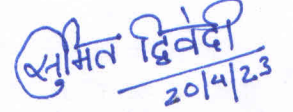 सुमित द्विवेदी
20/4/23